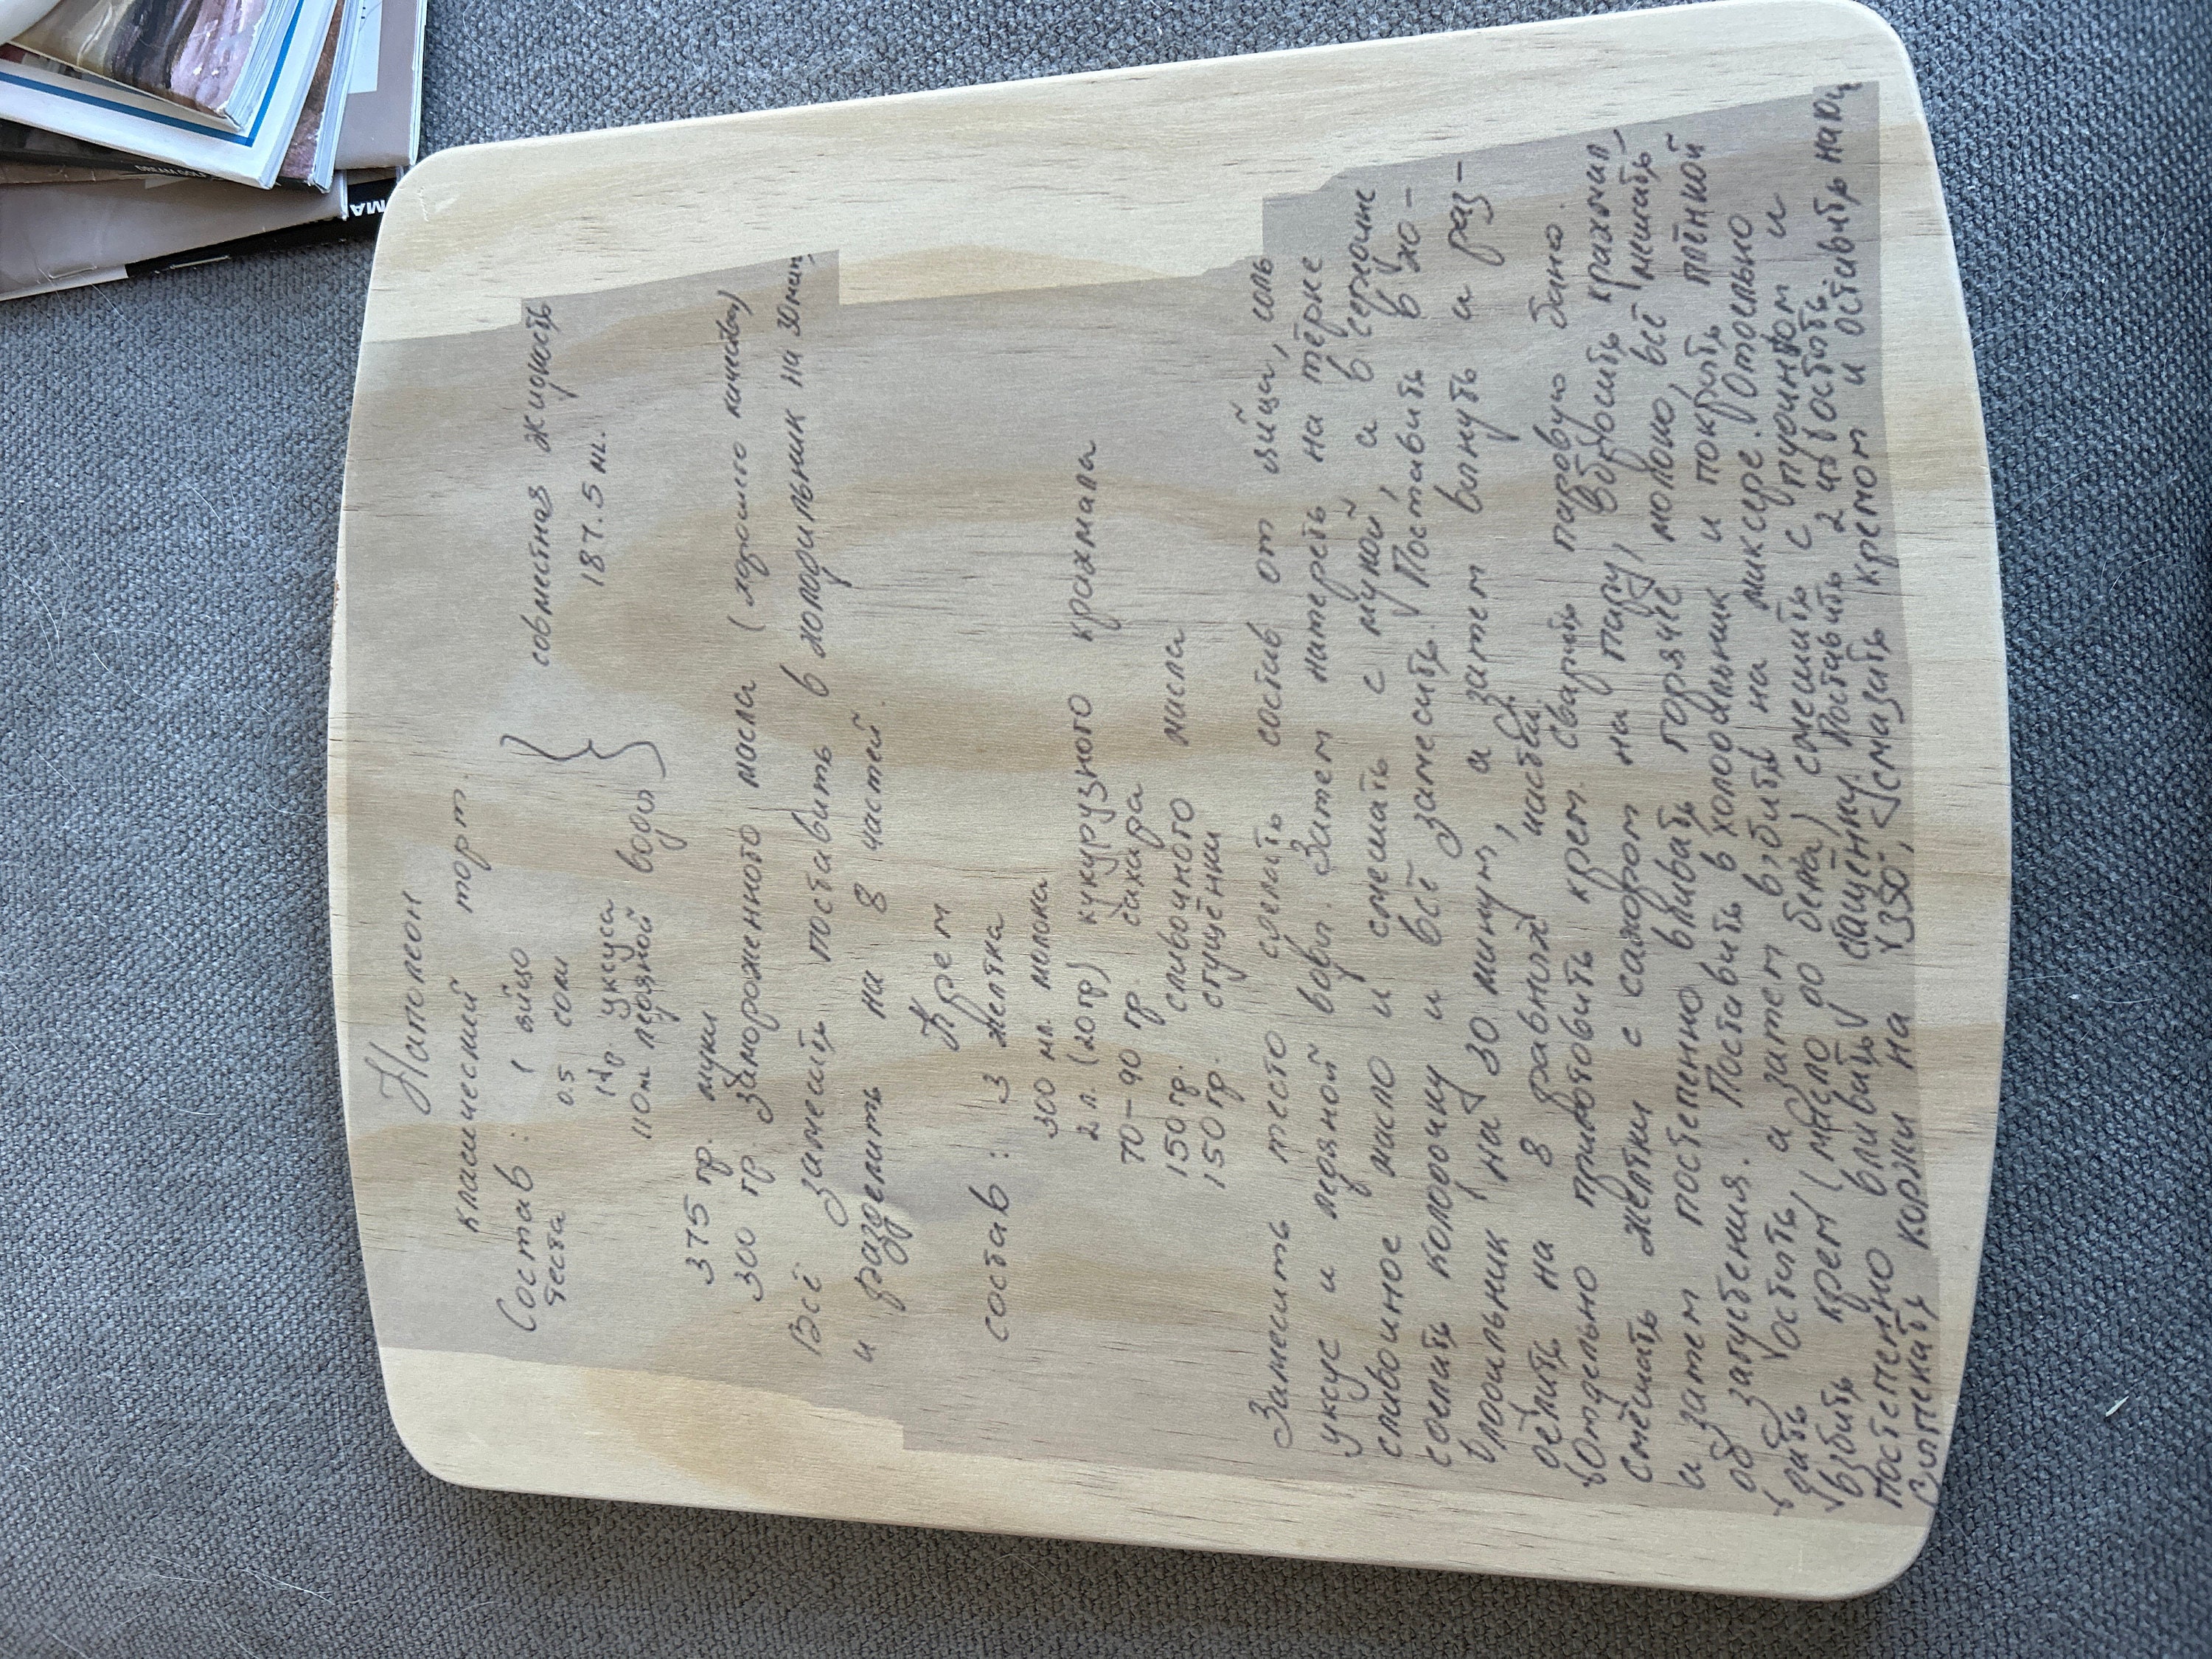 Наполеон
классический торт.
Состав : 1 яйцо
теста 0.5 соли
14 гр. уксуса
110 мл ледяной воды
совместная жидкость
187.5 мл.
375 гр. муки
300 гр. замороженного масла (хорошего качества)
Всё замесить поставить в холодильник на 30 мин,
и разделить на 8 частей.
Крем
состав : 3 желтка
300 мл. молока
2 л. (20 гр) кукурузного крахмала
70-90 гр. сахара
150 гр. сливочного масла
150 гр. сгущёнки
Замесить тесто сделать состав от яйца, соль
уксус и ледяной воды. Затем натереть на тёрке
сливочное масло и смешать с мукой, а в середине
сделать колодочку и всё замесить. Поставить в хо-
лодильник на 30 минут, а затем вынуть и раз-
делить на 8 равных частей.
Отдельно приготовить крем. сварить паровую баню.
смешать желтки с сахаром на пару, вбросить крахмал,
и затем постепенно вливать горячее молоко, всё мешать
до загустения. Поставить в холодильник и покрыть плёнкой
остыть, а затем взбить на миксере. Отдельно
взбить крем (масло до бела) смешать с пудингом и
постепенно вливать сгущёнку. Поставить
Выпекать коржи на 350°, смазать кремом и оставить на